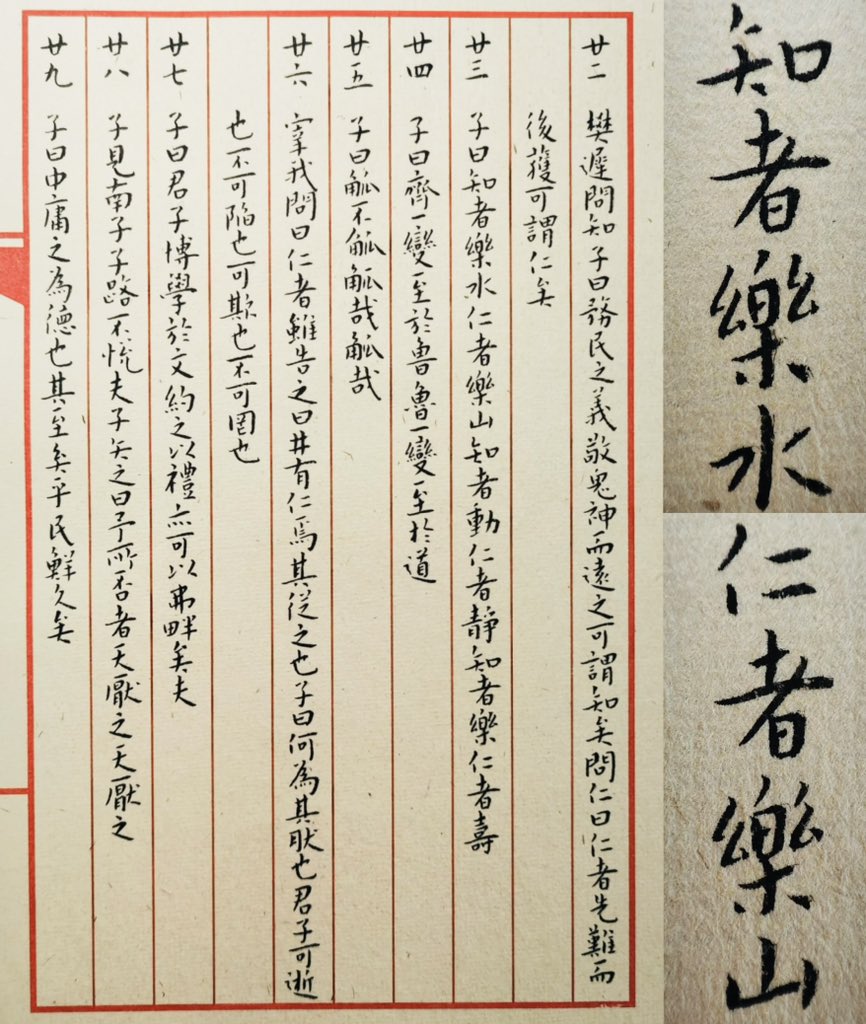 知者樂水
仁者樂山
廿二 樊遲問知子曰務民之義敬鬼神而遠之可謂知矣問仁曰仁者先難而
後獲可謂仁矣
廿三 子曰知者樂水仁者樂山知者動仁者靜知者樂仁者壽
廿四 子曰齊一變至於魯魯一變至於道
廿五 子曰觚不觚觚哉觚哉
廿六 宰我問曰仁者雖告之曰井有仁焉其從之也子曰何為其肰也君子可逝
也不可陷也可欺也不可罔也
廿七 子曰君子博學於文約之以禮亦可以弗畔矣夫
廿八 子見南子子路不悅夫子矢之曰予所否者天厭之天厭之
廿九 子曰中庸之為德也其至矣乎民鮮久矣